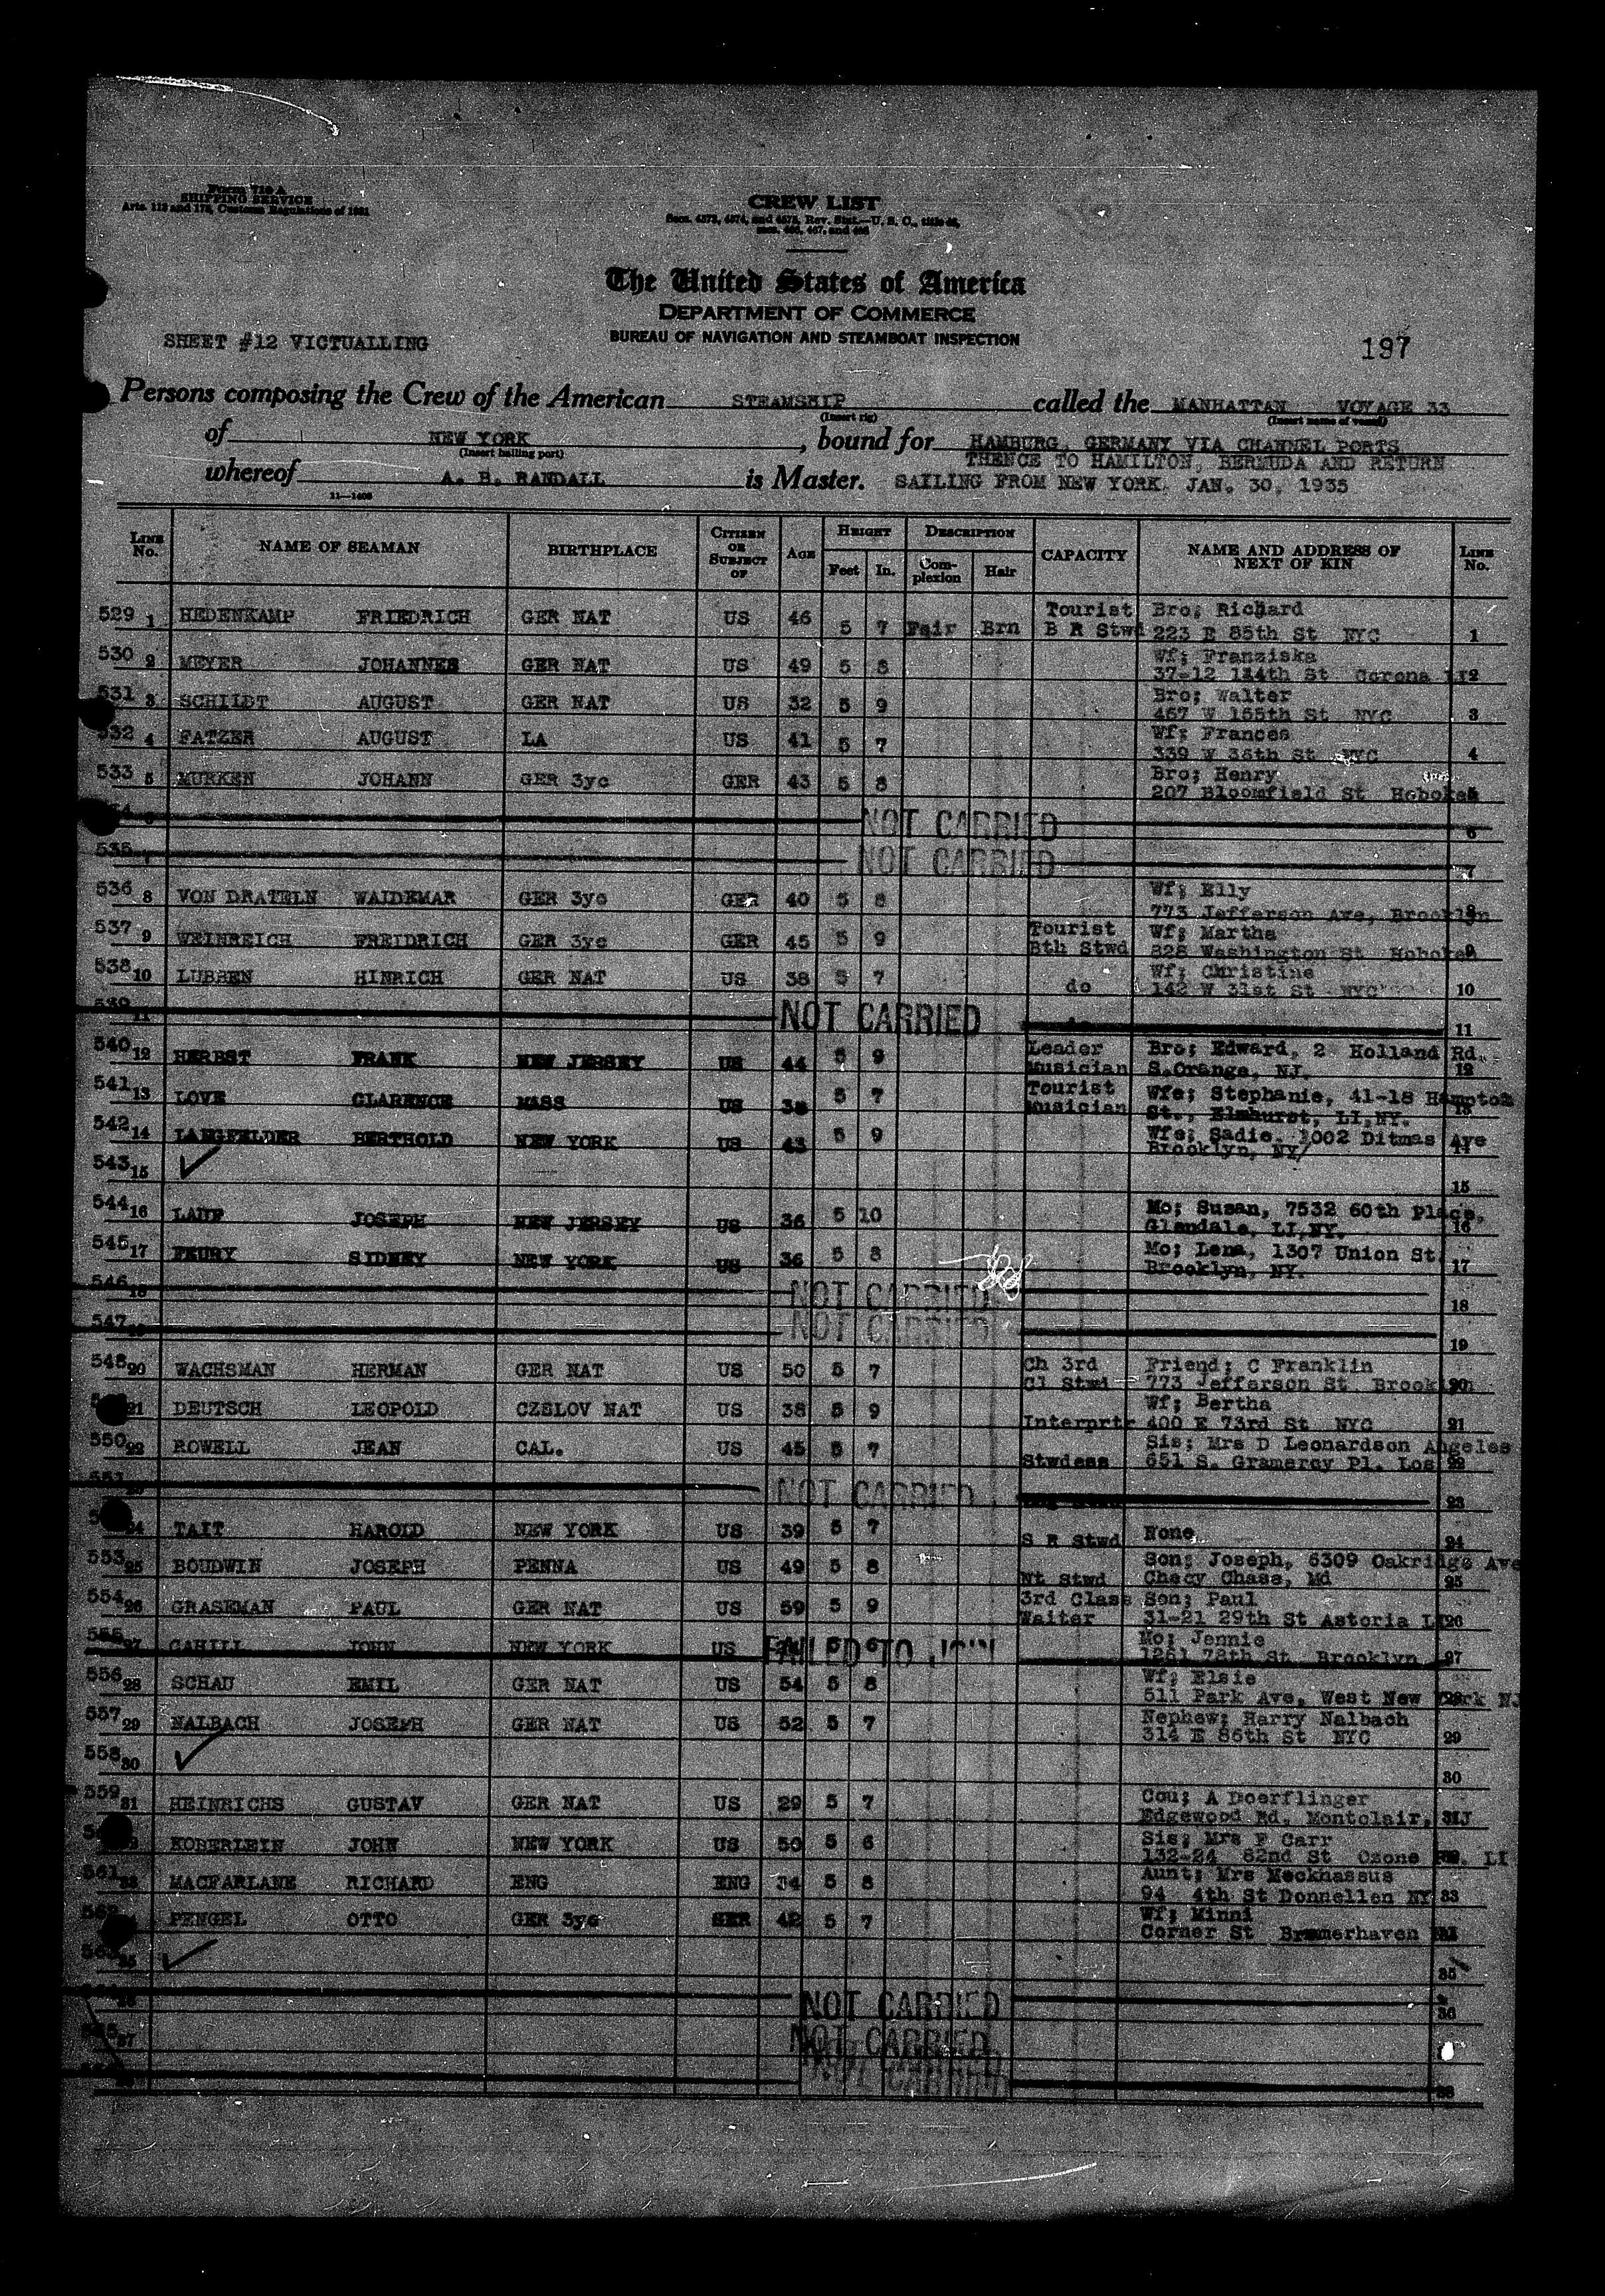 Form 710 A
SHIPPING SERVICE
Arts. 112 and 175, Customs Regulations of 1931
CREW LIST
Secs. 4573, 4574, and 4575, Rev. Stat.—U. S. C., title 46,
secs. 466, 467, and 468
The United States of America
DEPARTMENT OF COMMERCE
BUREAU OF NAVIGATION AND STEAMBOAT INSPECTION
SHEET #12 VICTUALLING
197
Persons composing the Crew of the American STEAMSHIP called the MANHATTAN VOYAGE 33
(Insert rig) (Insert name of vessel)
of NEW YORK, bound for HAMBURG, GERMANY VIA CHANNEL PORTS
(Insert hailing port) THENCE TO HAMILTON, BERMUDA AND RETURN
whereof A. B. RANDALL is Master. SAILING FROM NEW YORK, JAN. 30, 1935
LINE No. NAME OF SEAMAN BIRTHPLACE CITIZEN OR SUBJECT OF AGE HEIGHT Feet In. DESCRIPTION Complexion Hair CAPACITY NAME AND ADDRESS OF NEXT OF KIN LINE No.
529 1 HEDENKAMP FRIEDRICH GER NAT US 46 5 7 Fair Brn Tourist B R Stwd Bro; Richard 223 E 85th St NYC 1
530 2 MEYER JOHANNES GER NAT US 49 5 8 Wf; Franziska 37-12 114th St Corona LI 2
531 3 SCHILDT AUGUST GER NAT US 32 5 9 Bro; Walter 467 W 155th St NYC 3
532 4 FATZER AUGUST LA US 41 5 7 Wf; Frances 339 W 36th St NYC 4
533 5 MURKEN JOHANN GER 3yc GER 43 5 8 Bro; Henry 207 Bloomfield St Hoboken 5
6 NOT CARRIED 6
535 7 NOT CARRIED 7
536 8 VON DRATELN WAIDEMAR GER 3yc GER 40 5 8 Wf; Elly 773 Jefferson Ave, Brooklyn 8
537 9 WEINREICH FREIDRICH GER 3yc GER 45 5 9 Tourist Bth Stwd Wf; Martha 828 Washington St Hoboken 9
538 10 LUBBEN HINRICH GER NAT US 38 5 7 do Wf; Christine 142 W 31st St NYC 10
539 11 NOT CARRIED 11
540 12 HERBST FRANK NEW JERSEY US 44 5 9 Leader Musician Bro; Edward, 2 Holland Rd. S.Orange, NJ. 12
541 13 LOVE CLARENCE MASS US 38 5 7 Tourist Musician Wfe; Stephanie, 41-18 Hampton St., Elmhurst, LI,NY. 13
542 14 LANGFELDER BERTHOLD NEW YORK US 43 5 9 Wfe; Sadie, 1002 Ditmas Ave Brooklyn, NY/ 14
543 15 ✓ 15
544 16 LAUF JOSEPH NEW JERSEY US 36 5 10 Mo; Susan, 7532 60th Place, Glendale, LI,NY. 16
545 17 FEURY SIDNEY NEW YORK US 36 5 8 Mo; Lena, 1307 Union St. Brooklyn, NY. 17
546 18 NOT CARRIED 18
547 19 NOT CARRIED 19
548 20 WACHSMAN HERMAN GER NAT US 50 5 7 Ch 3rd Cl Stwd Friend; C Franklin 773 Jefferson St Brooklyn 20
21 DEUTSCH LEOPOLD CZSLOV NAT US 38 5 9 Interprtr Wf; Bertha 400 E 73rd St NYC 21
550 22 ROWELL JEAN CAL. US 45 5 7 Stwdess Sis; Mrs D Leonardson Angeles 651 S. Gramercy Pl. Los 22
551 NOT CARRIED 23
24 TAIT HAROLD NEW YORK US 39 5 7 S R Stwd None 24
553 25 BOUDWIN JOSEPH PENNA US 49 5 8 Nt Stwd Son; Joseph, 6309 Oakridge Ave Checy Chase, Md 25
554 26 GRASEMAN PAUL GER NAT US 59 5 9 3rd Class Waiter Son; Paul 31-21 29th St Astoria LI 26
555 27 CAHILL JOHN NEW YORK US 5 6 FAILED TO JOIN Mo; Jennie 1261 78th St Brooklyn 27
556 28 SCHAU EMIL GER NAT US 54 5 8 Wf; Elsie 511 Park Ave, West New York NJ 28
557 29 NALBACH JOSEPH GER NAT US 52 5 7 Nephew; Harry Nalbach 314 E 86th St NYC 29
558 30 ✓ 30
559 31 HEINRICHS GUSTAV GER NAT US 29 5 7 Cou; A Doerflinger Edgewood Rd, Montclair, NJ 31
KOBERLEIN JOHN NEW YORK US 50 5 6 Sis; Mrs F Carr 132-24 82nd St Ozone Pk. LI
561 33 MACFARLANE RICHARD ENG ENG 34 5 8 Aunt; Mrs Mecknassus 94 4th St Donnellen NY 33
562 PENGEL OTTO GER 3yc GER 42 5 7 Wf; Minni Corner St Bremerhaven
563 35 ✓ 35
NOT CARRIED 36
37 NOT CARRIED
NOT CARRIED 38